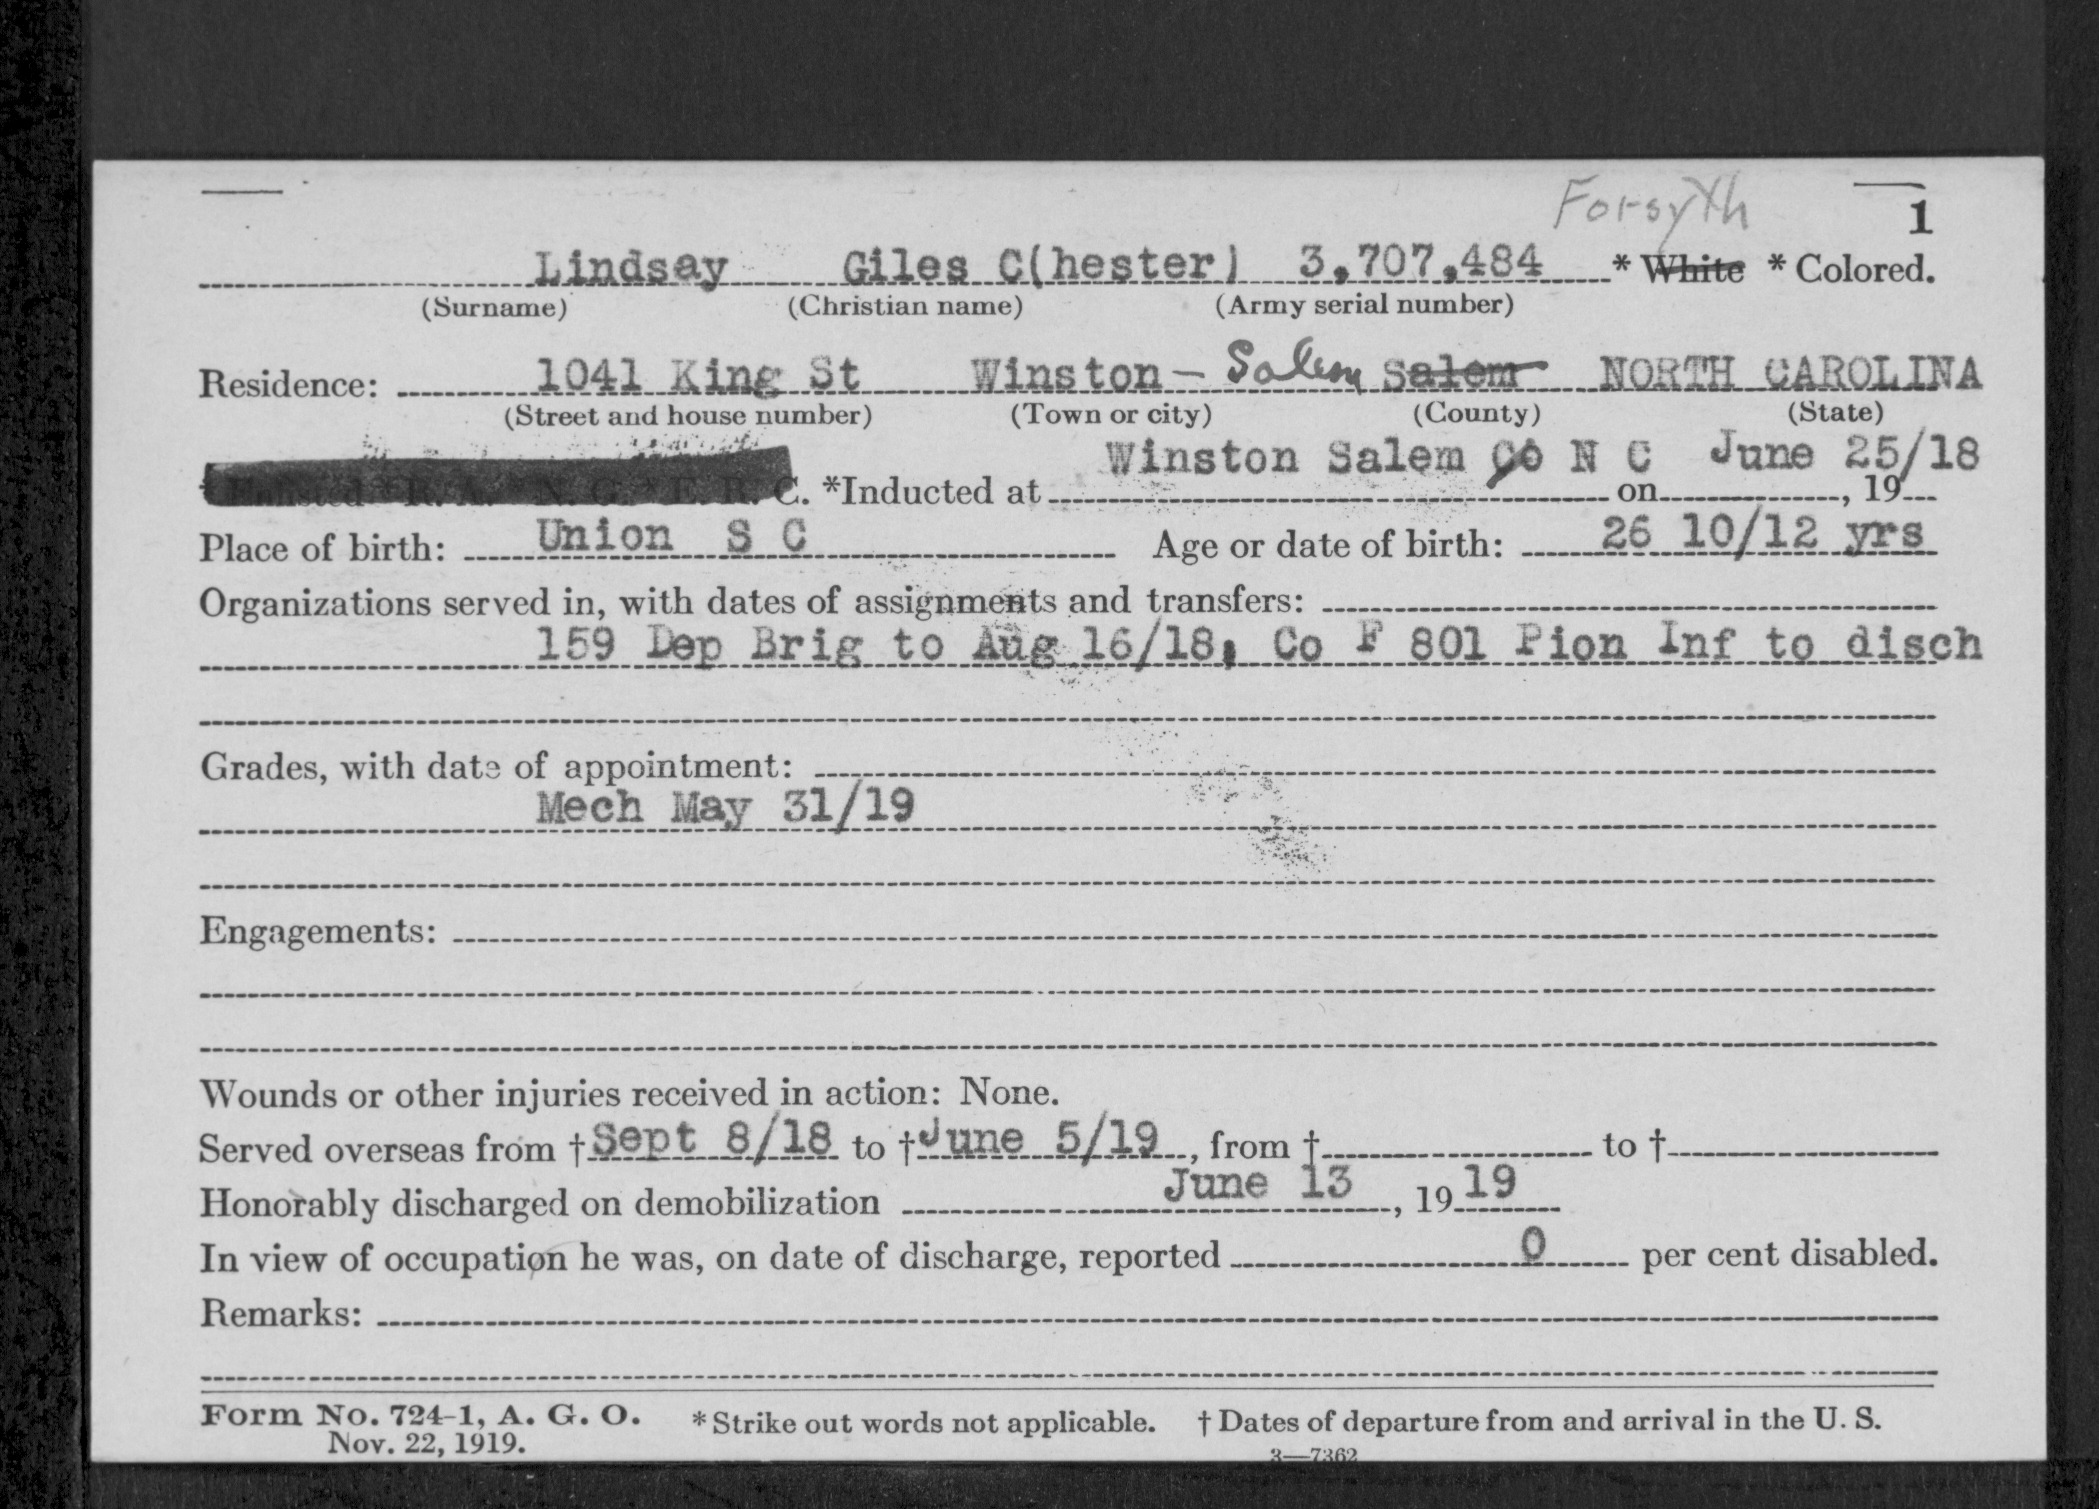 Forsyth
1
Lindsay Giles C(hester) 3,707,484 * White * Colored.
(Surname) (Christian name) (Army serial number)
Residence: 1041 King St Winston - Salem Salem NORTH CAROLINA
(Street and house number) (Town or city) (County) (State)
Winston Salem Co N C June 25/18
* Enlisted * R. A. * N. G. * E. R. C. *Inducted at on , 19
Place of birth: Union S C Age or date of birth: 26 10/12 yrs
Organizations served in, with dates of assignments and transfers:
159 Dep Brig to Aug 16/18; Co F 801 Pion Inf to disch
Grades, with date of appointment:
Mech May 31/19
Engagements:
Wounds or other injuries received in action: None.
Served overseas from † Sept 8/18 to † June 5/19, from † to †
Honorably discharged on demobilization June 13, 19 19
In view of occupation he was, on date of discharge, reported 0 per cent disabled.
Remarks:
Form No. 724-1, A. G. O. * Strike out words not applicable. † Dates of departure from and arrival in the U. S.
Nov. 22, 1919.
3—7362